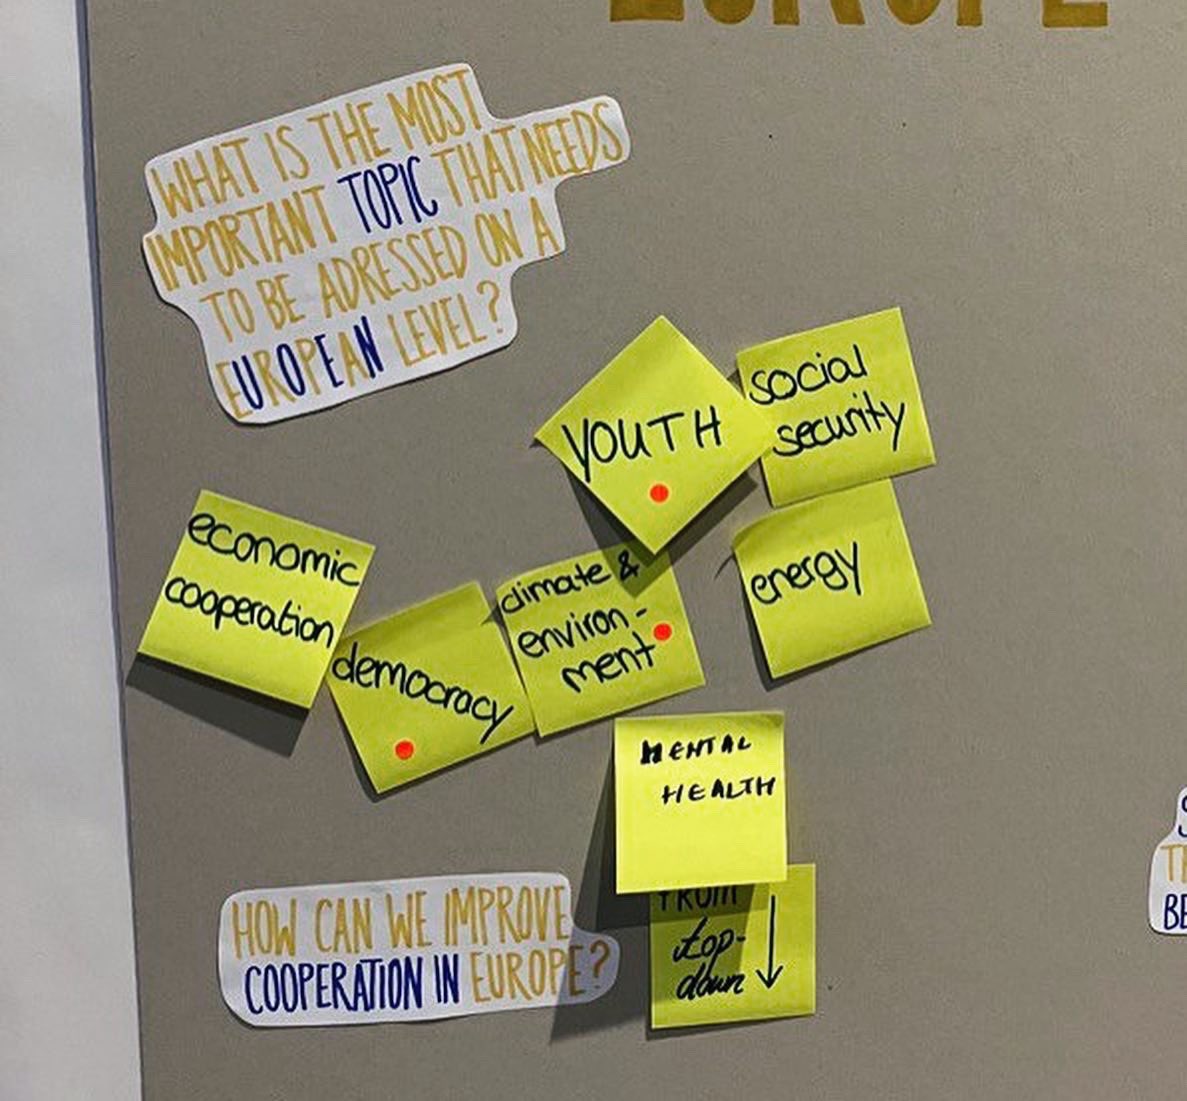 EUROPE
WHAT IS THE MOST
IMPORTANT TOPIC THAT NEEDS
TO BE ADRESSED ON A
EUROPEAN LEVEL?
YOUTH
social
security
economic
cooperation
democracy
climate &
environ-
ment
energy
MENTAL
HEALTH
HOW CAN WE IMPROVE
COOPERATION IN EUROPE?
FROM
top-
down
BE